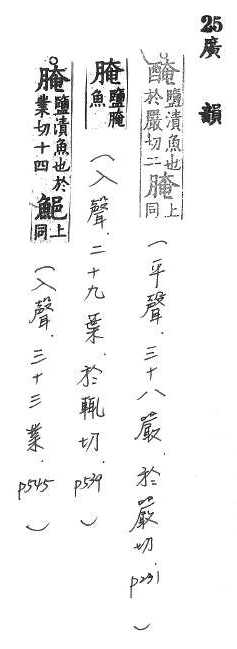 25廣韻
醃鹽漬魚也於嚴切二腌上同(平聲.三十八嚴.於嚴切.p231)
腌鹽腌魚(入聲.二十九葉.於輒切.p539)
腌鹽漬魚也於業切十四䱒上同(入聲.三十三業.p545)